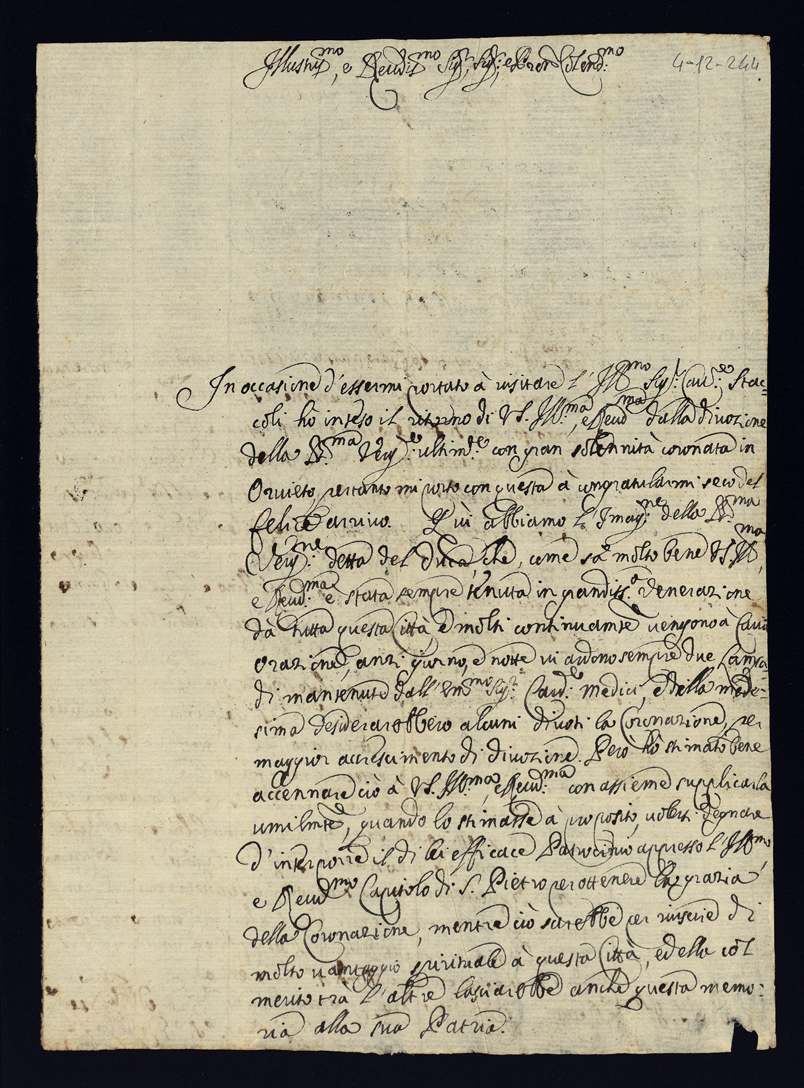 Illustr.mo, e Reud.mo Sig.r, Sig.r, e Pron Colend.mo
4-12-244
In occasione d'essermi portato à visitare l'Ill.mo Sig.r Cau.re Stac=
coli hò inteso il ritorno di V.S. Ill.ma, e Reud.ma dalla diuozione
della B.ma Verg.e ultim.te con gran solennità coronata in
Oruieto, pertanto mi porto con questa à congratularmi seco del
felice arriuo. Qui abbiamo l'Imag.ne della B.ma
Verg.ne detta del Duca, che, come sà molto bene V.S. Ill.ma,
e Reud.ma è stata sempre tenuta in grandiss.a Venerazione
dà tutta questa Città, e molti continuam.te uengono à farui
orazione, anzi giorno, e notte ui ardono sempre due Lampa=
di mantenute dall'Em.mo Sig.r Card.e Medici, e della mede=
sima desiderarebbero alcuni diuoti la Coronazione, per
maggior accrescimento di diuozione. Però hò stimato bene
accennare ciò à V.S. Ill.ma, e Reud.ma con assieme supplicarla
umilm.te, quando lo stimasse à proposito, uolersi degnare
d'interporre il di lei efficace Patrocinio appresso l'Ill.mo,
e Reud.mo Capitolo di S. Pietro per ottenere la grazia
della Coronazione, mentre ciò sarebbe per riuscire di
molto uantaggio spirituale à questa Città, ed ella col
merito trà l'altre lasciarebbe anche questa memo:
ria alla sua Patria.